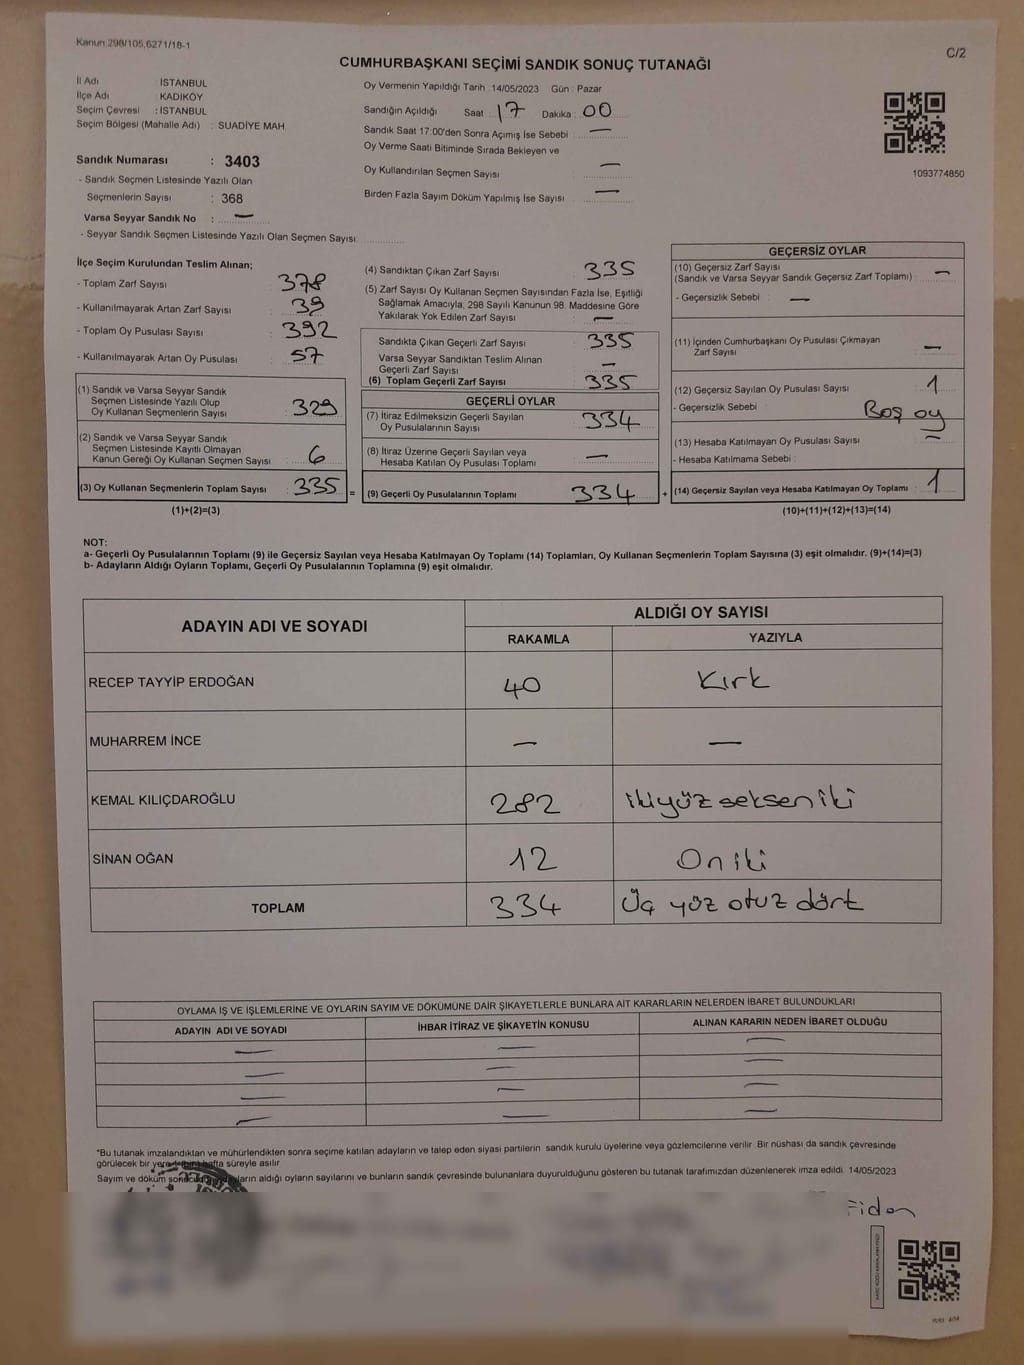 Kanun 298/105,6271/18-1
C/2
CUMHURBAŞKANI SEÇİMİ SANDIK SONUÇ TUTANAĞI
İl Adı İSTANBUL
İlçe Adı KADIKÖY
Seçim Çevresi : İSTANBUL
Seçim Bölgesi (Mahalle Adı) : SUADİYE MAH.
Sandık Numarası : 3403
- Sandık Seçmen Listesinde Yazılı Olan
Seçmenlerin Sayısı : 368
Varsa Seyyar Sandık No : —
- Seyyar Sandık Seçmen Listesinde Yazılı Olan Seçmen Sayısı:
Oy Vermenin Yapıldığı Tarih : 14/05/2023 Gün : Pazar
Sandığın Açıldığı Saat : 17 Dakika : 00
Sandık Saat 17:00'den Sonra Açımış İse Sebebi : —
Oy Verme Saati Bitiminde Sırada Bekleyen ve
Oy Kullandırılan Seçmen Sayısı —
Birden Fazla Sayım Döküm Yapılmış İse Sayısı : —
1093774850
İlçe Seçim Kurulundan Teslim Alınan;
- Toplam Zarf Sayısı : 378
- Kullanılmayarak Artan Zarf Sayısı : 39
- Toplam Oy Pusulası Sayısı : 392
- Kullanılmayarak Artan Oy Pusulası : 57
(1) Sandık ve Varsa Seyyar Sandık
Seçmen Listesinde Yazılı Olup
Oy Kullanan Seçmenlerin Sayısı : 329
(2) Sandık ve Varsa Seyyar Sandık
Seçmen Listesinde Kayıtlı Olmayan
Kanun Gereği Oy Kullanan Seçmen Sayısı : 6
(3) Oy Kullanan Seçmenlerin Toplam Sayısı : 335 =
(1)+(2)=(3)
(4) Sandıktan Çıkan Zarf Sayısı : 335
(5) Zarf Sayısı Oy Kullanan Seçmen Sayısından Fazla İse, Eşitliği
Sağlamak Amacıyla, 298 Sayılı Kanunun 98. Maddesine Göre
Yakılarak Yok Edilen Zarf Sayısı : —
Sandıkta Çıkan Geçerli Zarf Sayısı : 335
Varsa Seyyar Sandıktan Teslim Alınan
Geçerli Zarf Sayısı : —
(6) Toplam Geçerli Zarf Sayısı : 335
GEÇERLİ OYLAR
(7) İtiraz Edilmeksizin Geçerli Sayılan
Oy Pusulalarının Sayısı : 334
(8) İtiraz Üzerine Geçerli Sayılan veya
Hesaba Katılan Oy Pusulası Toplamı : —
(9) Geçerli Oy Pusulalarının Toplamı : 334 +
GEÇERSİZ OYLAR
(10) Geçersiz Zarf Sayısı
(Sandık ve Varsa Seyyar Sandık Geçersiz Zarf Toplamı) : —
- Geçersizlik Sebebi : —
(11) İçinden Cumhurbaşkanı Oy Pusulası Çıkmayan
Zarf Sayısı : —
(12) Geçersiz Sayılan Oy Pusulası Sayısı : 1
- Geçersizlik Sebebi : Boş oy
(13) Hesaba Katılmayan Oy Pusulası Sayısı : —
- Hesaba Katılmama Sebebi :
(14) Geçersiz Sayılan veya Hesaba Katılmayan Oy Toplamı : 1
(10)+(11)+(12)+(13)=(14)
NOT:
a- Geçerli Oy Pusulalarının Toplamı (9) ile Geçersiz Sayılan veya Hesaba Katılmayan Oy Toplamı (14) Toplamları, Oy Kullanan Seçmenlerin Toplam Sayısına (3) eşit olmalıdır. (9)+(14)=(3)
b- Adayların Aldığı Oyların Toplamı, Geçerli Oy Pusulalarının Toplamına (9) eşit olmalıdır.
ADAYIN ADI VE SOYADI ALDIĞI OY SAYISI
RAKAMLA YAZIYLA
RECEP TAYYİP ERDOĞAN 40 Kırk
MUHARREM İNCE — —
KEMAL KILIÇDAROĞLU 282 ikiyüz seksen iki
SİNAN OĞAN 12 On iki
TOPLAM 334 Üç yüz otuz dört
OYLAMA İŞ VE İŞLEMLERİNE VE OYLARIN SAYIM VE DÖKÜMÜNE DAİR ŞİKAYETLERLE BUNLARA AİT KARARLARIN NELERDEN İBARET BULUNDUKLARI
ADAYIN ADI VE SOYADI İHBAR İTİRAZ VE ŞİKAYETİN KONUSU ALINAN KARARIN NEDEN İBARET OLDUĞU
— — —
— — —
— — —
— — —
*Bu tutanak imzalandıktan ve mühürlendikten sonra seçime katılan adayların ve talep eden siyasi partilerin sandık kurulu üyelerine veya gözlemcilerine verilir. Bir nüshası da sandık çevresinde
görülecek bir yere bir hafta süreyle asılır
Sayım ve döküm aldığı oyların sayılarını ve bunların sandık çevresinde bulunanlara duyurulduğunu gösteren bu tutanak tarafımızdan düzenlenerek imza edildi. 14/05/2023
Fidan